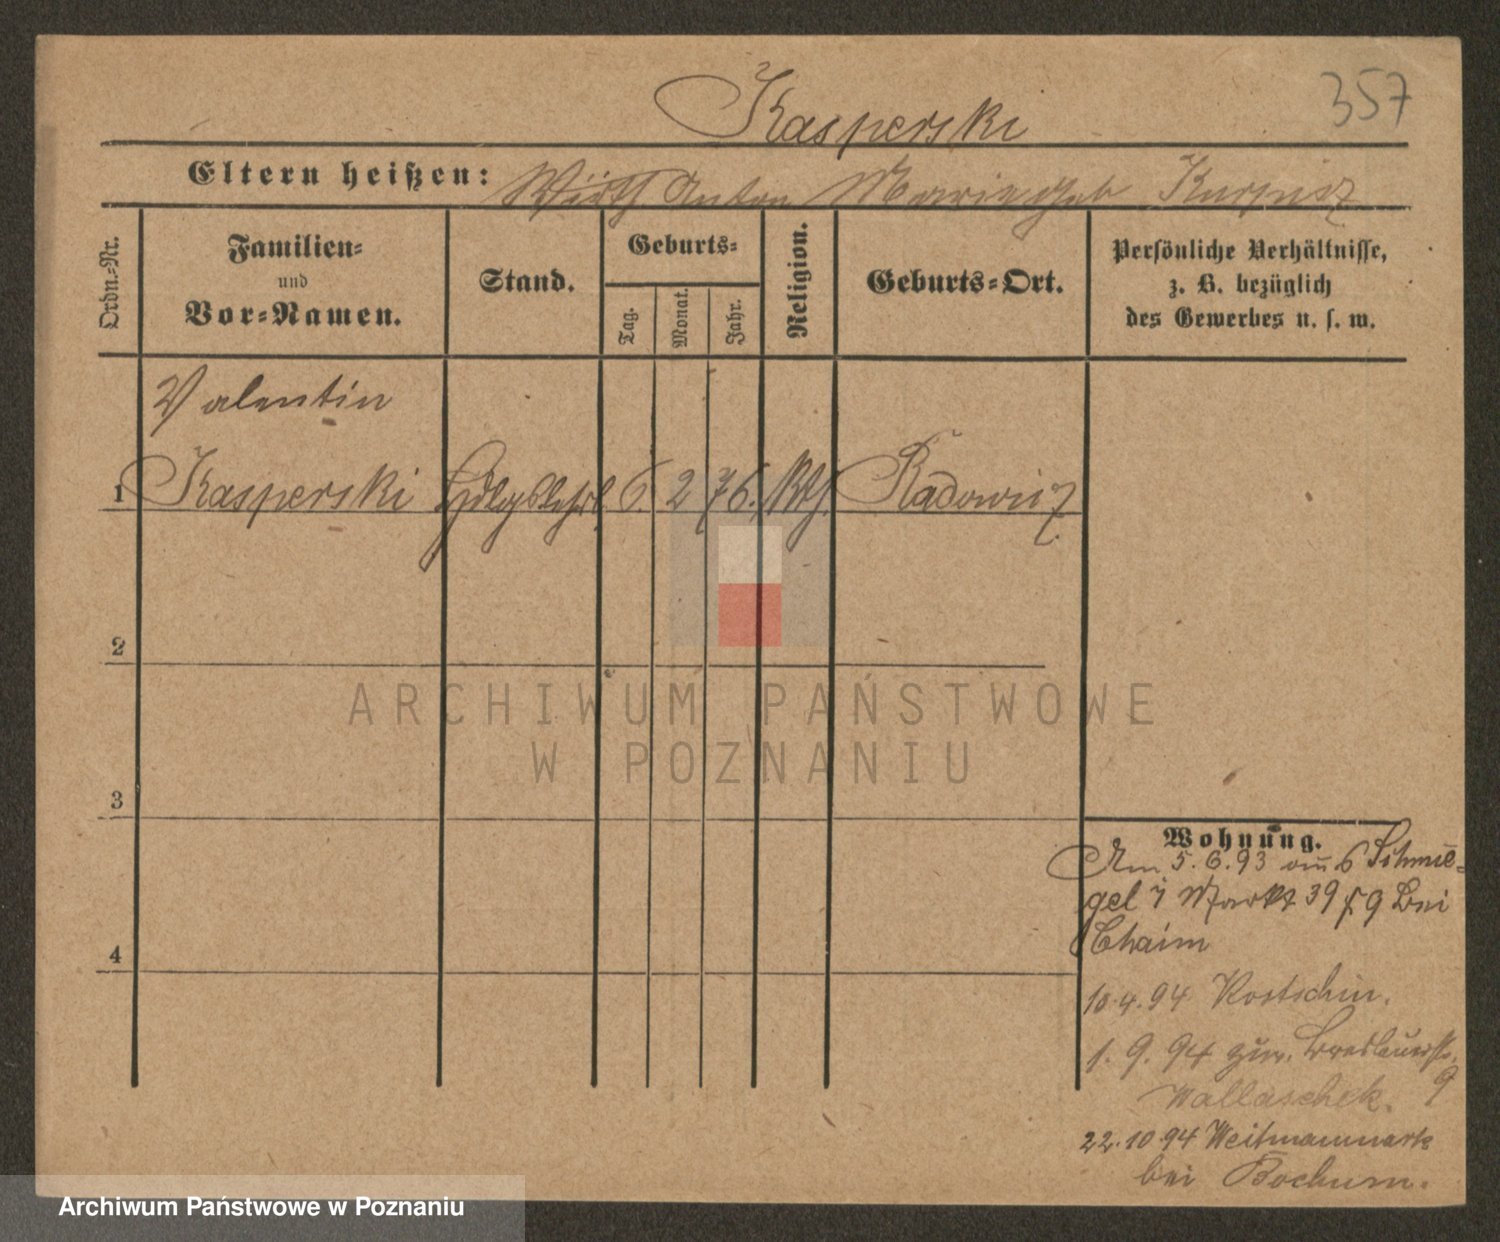 357
Kasperski
Eltern heißen: Wirth Anton Marie geb
Ordn.-Nr.
Familien-
und
Vor-Namen.
Stand.
Geburts-
Tag.
Monat.
Jahr.
Religion.
Geburts-Ort.
Persönliche Verhältnisse,
z. B. bezüglich
des Gewerbes u. s. w.
Valentin
1 Kasperski 6. 2 76. Kth. Radowicz
2
3
4
Wohnung.
Am 5.6.93 aus Schmie-
gel Markt 39 bei
Chaim
10.4.94 Kostschin.
1.9.94 zur. Breslauerstr.
9
Wallaschek.
22.10 94 Weitmarmark
bei Bochum.
ARCHIWUM PAŃSTWOWE
W POZNANIU
Archiwum Państwowe w Poznaniu